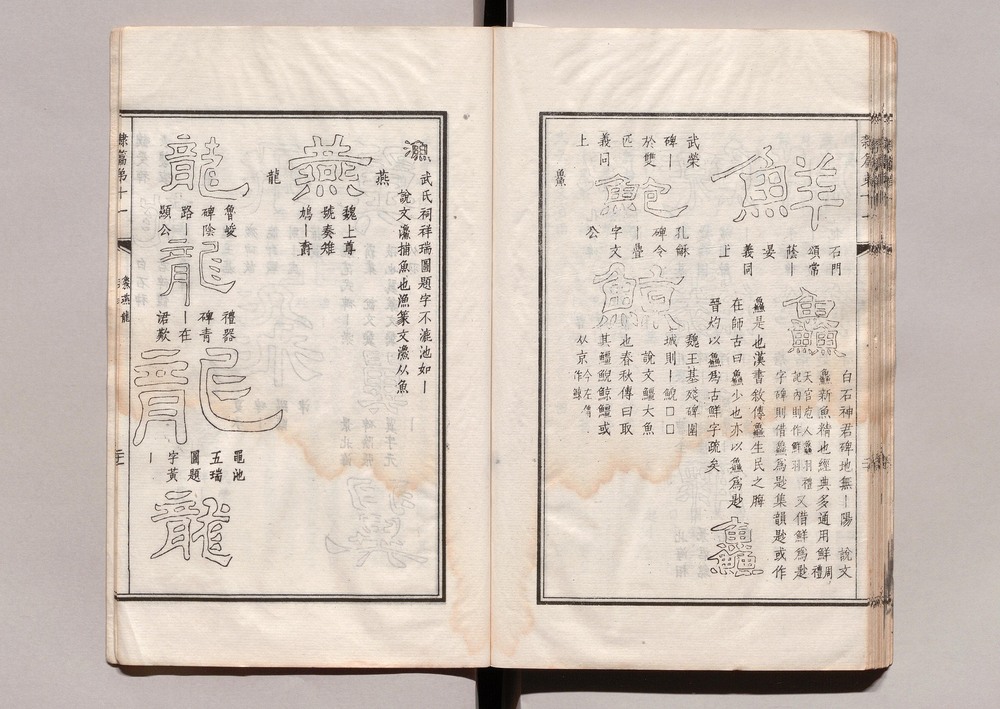 鮮
石門
頌常
蔭丨
晏
義同
上
鱻
白石神君碑地無丨陽 說文
鱻新魚精也經典多通用鮮周禮
天官庖人鱻羽禮記內則作鮮羽又借鮮爲尟
字碑則借鱻爲尟集韻尟或作
鱻是也漢書敘傳鱻生民之脢
在師古曰鱻少也亦以鱻爲尟
晉灼以鱻爲古鮮字疏矣
鱻
武榮
碑丨
於雙
匹
義同
上
鮑
孔龢
碑令
丨疊
字文
公
鯨
魏王基殘碑圍
城則丨鯢囗囗
說文䲔大魚
也春秋傳曰取
其䲔鯢鯨䲔或
从京今左傳作鯨
隸篇弟十一
漁
武氏祠祥瑞圖題字不漉池如丨
說文𤅅捕魚也漁篆文𤅅从魚
燕
燕
魏上尊
號奏雉
鳩丨爵
龍
龍
魯峻
碑陰
路丨
顯公
龍
禮器
碑青
丨在
涒歎
龍
黽池
五瑞
圖題
字黃
丨
龍
隸篇弟十一
燕龍